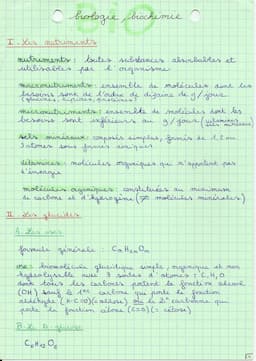 biologie / biochimie
I - Les nutriments
nutriments : toutes substances absorbables et
utilisables par l'organisme
macronutriments : ensemble de molécules dont les
besoins sont de l'ordre de dizaine de g / jour.
(glucides, lipides, protéines)
micronutriments : ensemble de molécules dont les
besoins sont inférieurs au g / jour (vitamines
sels minéraux)
sels minéraux : composés simples, formés de 1, 2 ou
3 atomes sous formes ioniques
vitamines : molécules organiques qui n'apportent pas
d'énergie
molécules organiques : constituées au minimum
de carbone et d'hydrogène (≠ molécules minérales)
II - Les glucides
A. Les oses
formule générale : CnH2nOn
ose : biomolécule glucidique simple, organique et non
hydrolysable avec 3 sortes d'atomes : C, H, O
dont tous les carbones portent la fonction alcool
(OH) sauf le 1er carbone qui porte la fonction
aldéhyde (R-C=O) (: aldose) ou le 2e carbone qui
porte la fonction cétone (C=O) (: cétose)
B. Le glucose
C6H12O6